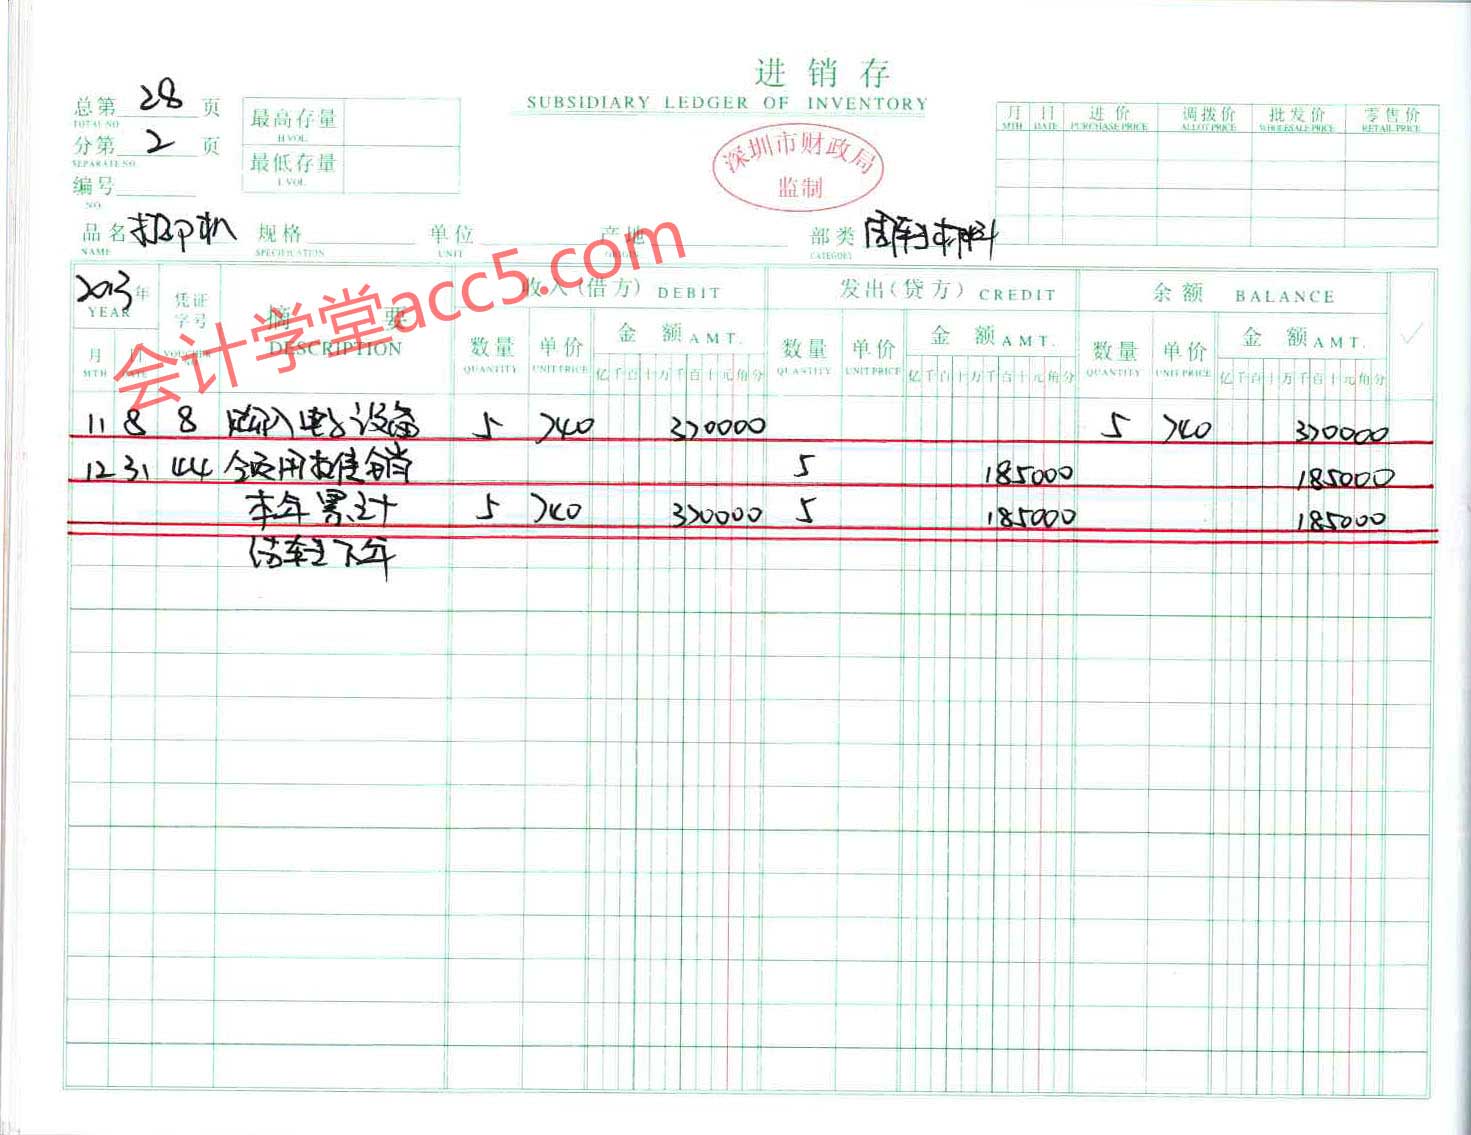 进 销 存
SUBSIDIARY LEDGER OF INVENTORY
总第 28 页
TOTAL NO
分第 2 页
SEPARATE NO.
编号
NO.
最高存量
H.VOL.
最低存量
L.VOL.
深圳市财政局
监制
月 日 进价 调拨价 批发价 零售价
MTH DATE PURCHASE PRICE ALLOT PRICE WHOLESALE PRICE RETAIL PRICE
品名 打印机 规格 单位 产地 部类 周转材料
NAME SPECIFICATION UNIT ORIGIN CATEGORY
会计学堂acc5.com
2013年 凭证 摘 要 收入(借方) DEBIT 发出(贷方) CREDIT 余额 BALANCE
YEAR 字号 DESCRIPTION
月 日 VOUCHER 数量 单价 金 额 AMT. 数量 单价 金 额 AMT. 数量 单价 金 额 AMT.
MTH DATE NO. QUANTITY UNIT PRICE 亿千百十万千百十元角分 QUANTITY UNIT PRICE 亿千百十万千百十元角分 QUANTITY UNIT PRICE 亿千百十万千百十元角分
11 8 8 购入电子设备 5 740 370000 5 740 370000
12 31 44 领用摊销 5 185000 185000
本年累计 5 740 370000 5 185000 185000
结转下年